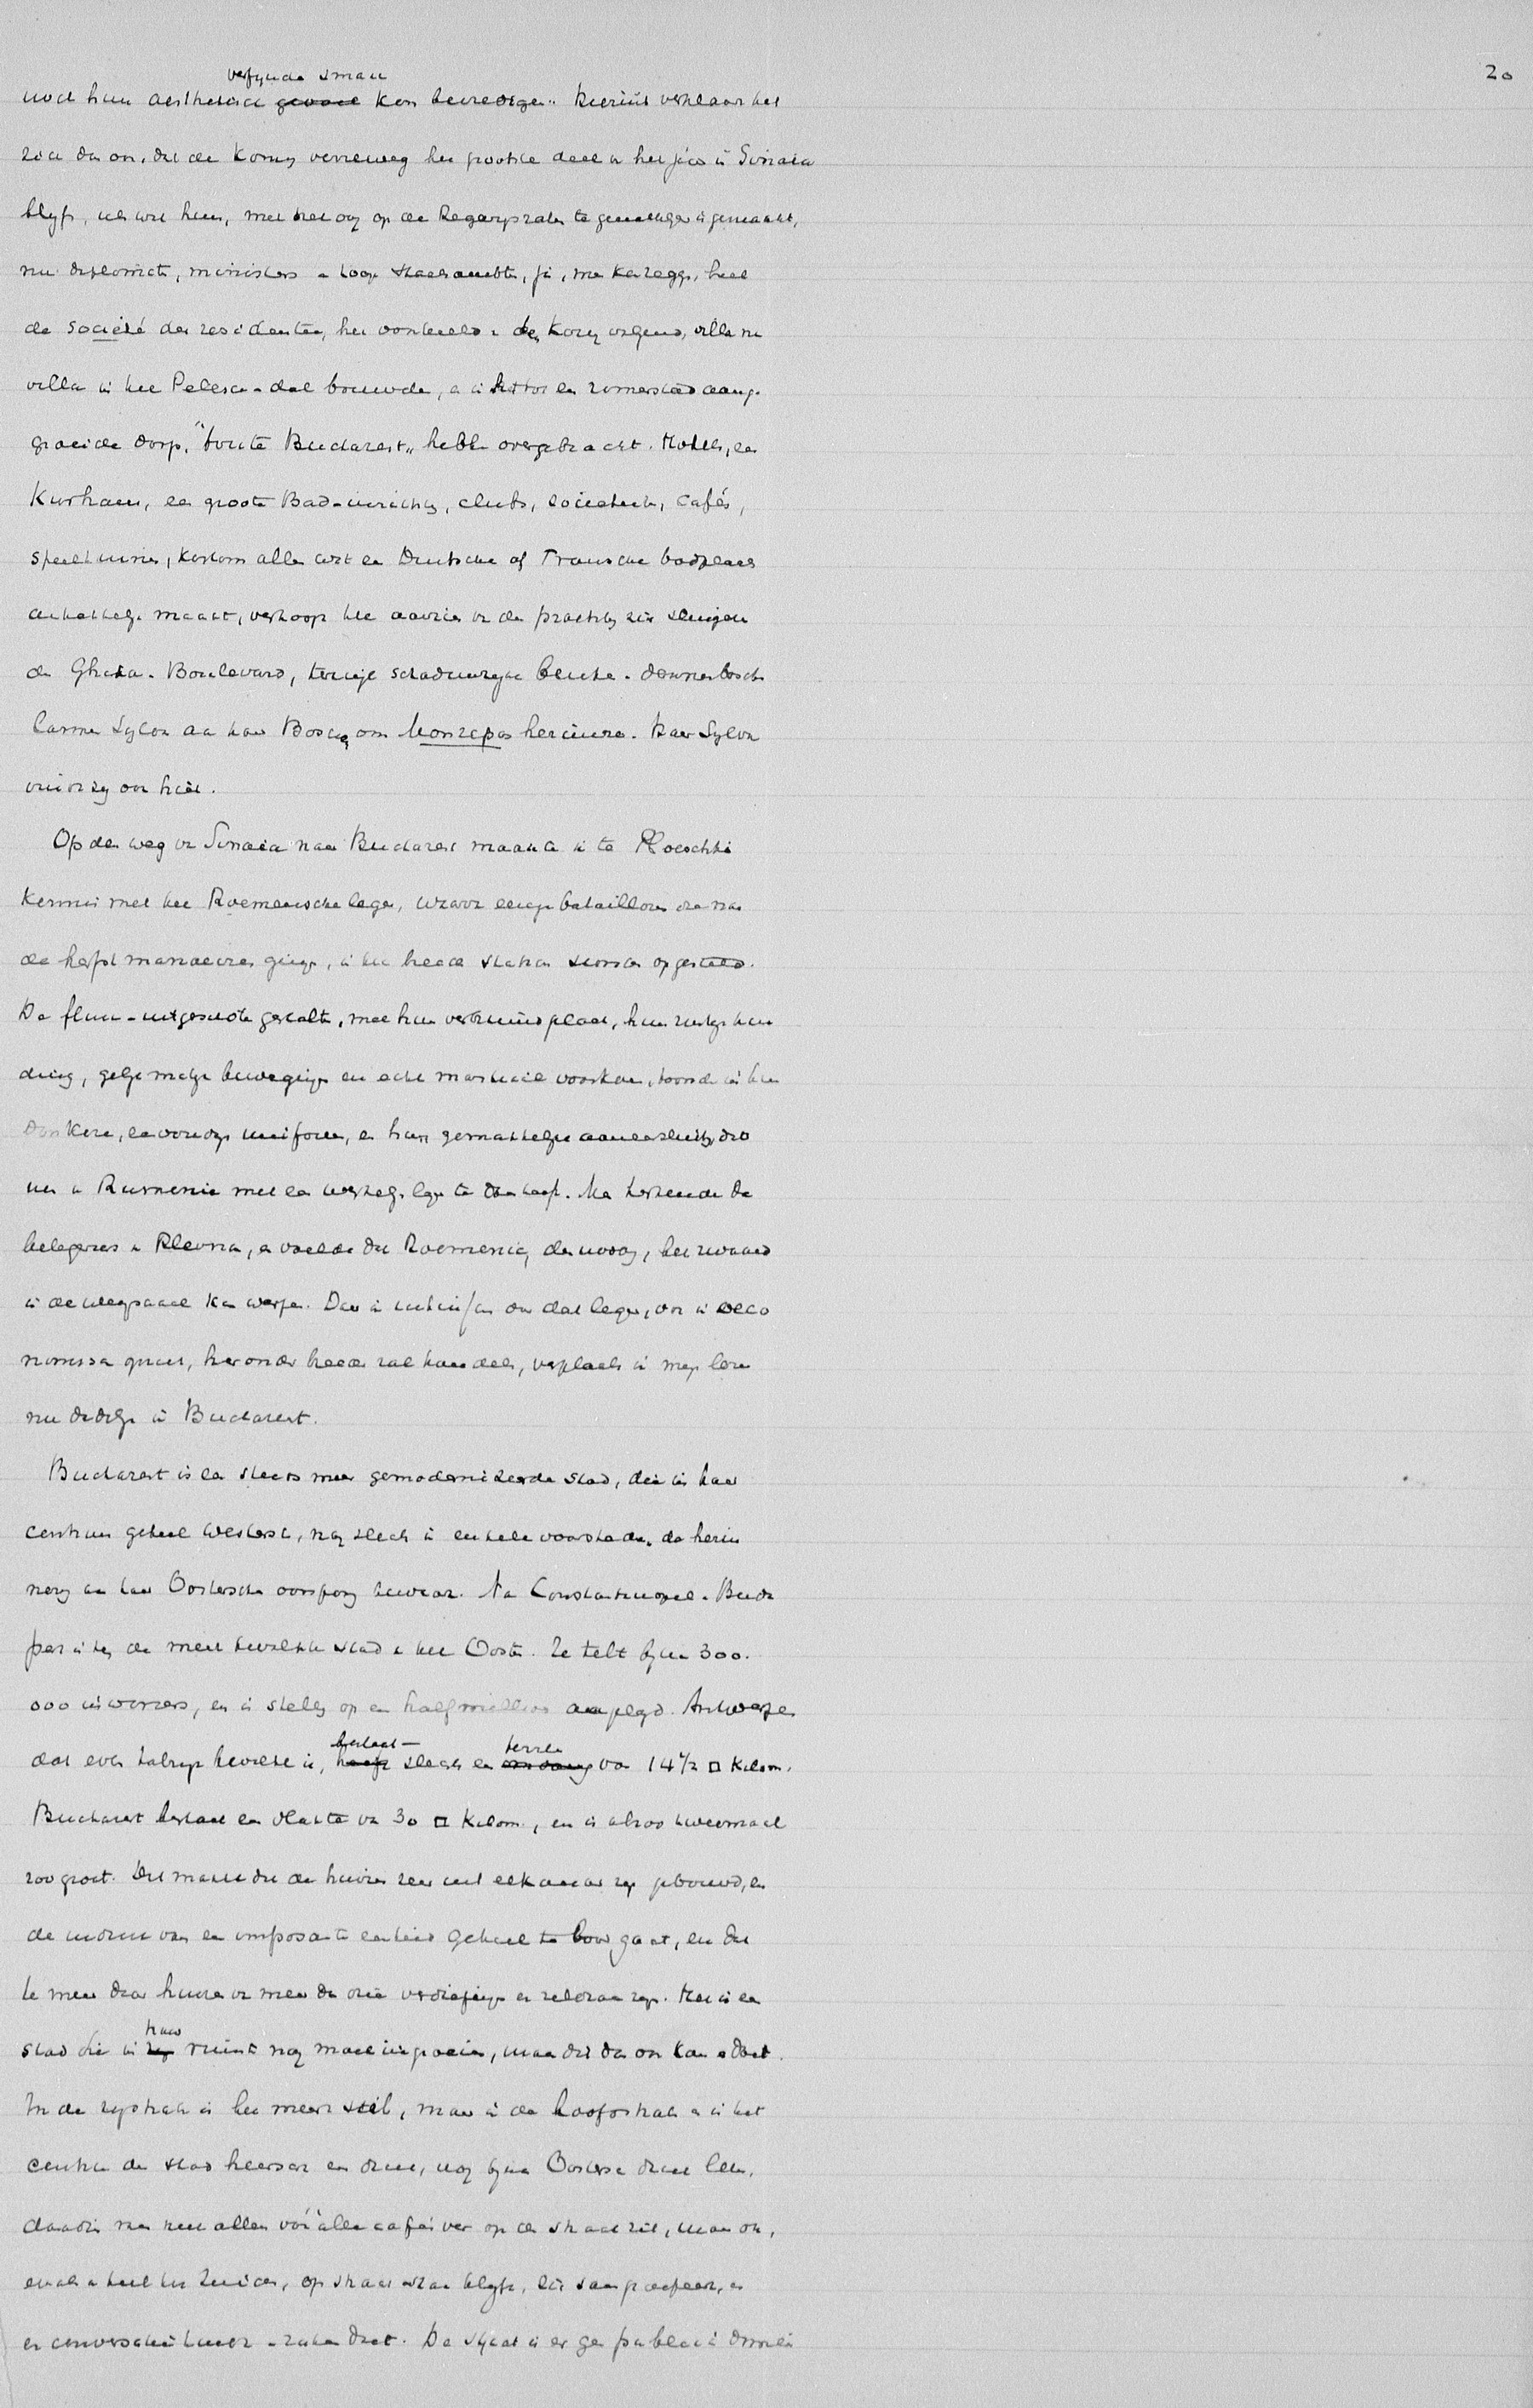 20
verfijnde smaak
noch hun aesthetisch gevoel kon bevredigen". Hieruit verklaart het
zich dan ook, dat de Koning verreweg het grootste deel v het jaar in Sinaia
blijft, en wel hun, met het oog op de Regeeringszaken te gemakkelijk is gemaakt,
nu diplomaten, ministers en hooge staatsambten, ja, men kan zeggen, heel
de société der residentie, het voorbeeld v den Koning volgend, villa na
villa in het Pelesch-dal bouwde, en in het tot een zomerstad aange-
groeide dorp, "toute Bucharest" hebben overgebracht. Hotels, een
Kurhaus, een groote Bad-inrichting, clubs, societeiten, Cafés,
speeltuinen, kortom alles wat een Duitsche of Fransche badplaats
aantrekkelijk maakt, verhoogt het aanzien van de prachtig zich slingerende
de Ghica-Boulevard, terwijl schaduwrijke beuken- dennenbosch
Carmen Sylva aan haar Bosch om Monrepos herinnert. Haar Sylva
vindt zij ook hier.
Op den weg van Sinaia naar Bucharest maakte ik te Ploeschti
kennis met het Roemeensche leger, waarvan eenige bataillons die naar
de herfstmanoeuvres gingen, in het breede station stonden opgesteld.
De flink-uitgegroeide gestalten, met hun verbruind gelaat, hun rustige hou-
ding, gelijkmatige bewegingen en echt martiaal voorkomen, toonde in hun
donkere, eenvoudige uniform, en hun gemakkelijke aaneensluiting, dat
men in Rumenie met een werkelijk leger te doen heeft. Men herkende de
belegeraars v Plevna, en voelde dat Roemenie, des noods, het zwaard
in de weegschaal kan werpen. Daar ik intusschen over dat leger, ook in oeco-
nomische zin, hieronder breeder zal handelen, verplaats ik mij liever
nu dadelijk in Bucharest.
Bucharest is een steeds meer gemoderniseerde stad, die in haar
centrum geheel Westersch, nog slechts in enkele voorsteden, de herin-
nering aan haar Oostersche oorsprong bewaart. Na Constantinopel en Buda-
pest is zij de meest bevolkte stad in het Oosten. Ze telt bijna 300.
000 inwoners, en is stellig op een half millioen aangelegd. Antwerpen
beslaat- terrein
dat even talrijk bevolkt is, heeft slechts een omvang van 14½ □ Kilom.
Bucharest beslaat een vlakte van 30 □ Kilom., en is alzoo tweemaal
zoo groot. Dit maakt dat de huizen zeer uit elkander zijn gebouwd, en
de indruk van een imposante eenheid geheel te loor gaat, en dat
te meer daar huizen van meer dan drie verdiepingen er zeldzaam zijn. Het is een
haar
stad die in zijn ruimte nog moet ingroeien, maar dit dan ook kan en doet.
In de zijstraten is het meest stil, maar in de hoofdstraten en in het
centrum der stad heerscht een druk, nog bijna Oostersch druk leven,
daardoor men niet alleen vóór alle cafés ver op de straat zit, maar ook,
evenals in heel het Zuiden, op straat staan blijft, zich saamgroepeert, en
er conversatie houdt en zaken doet. De straat is er geen publiek domein